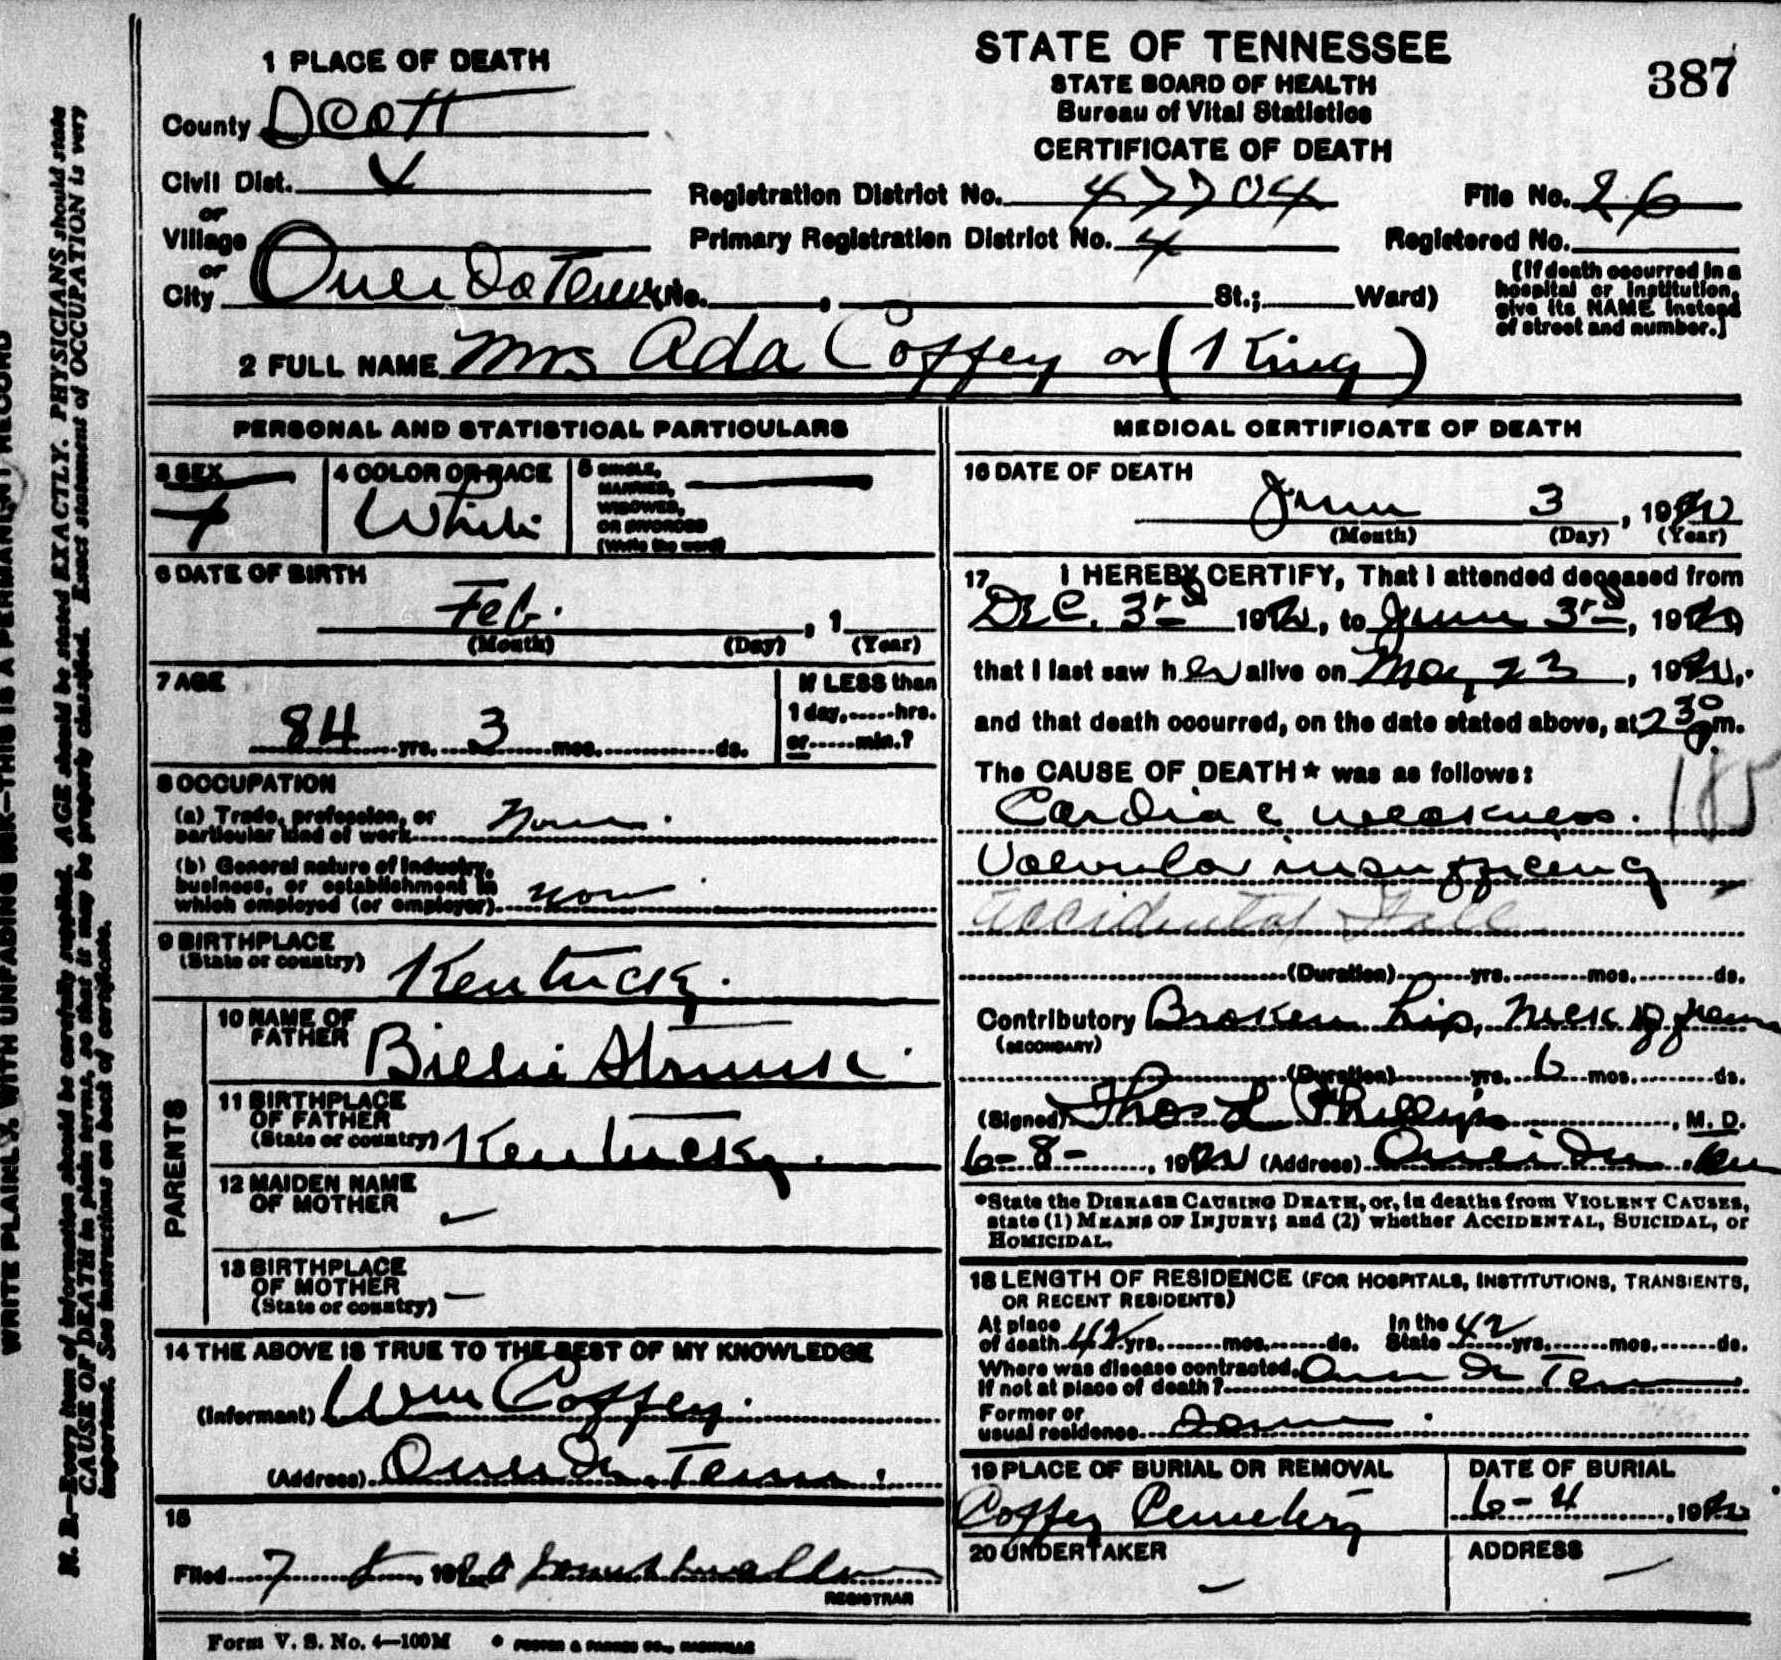 1 PLACE OF DEATH
County Scott
Civil Dist. 4
or
Village
or
City Oneida Tenn No. , St.; Ward)
STATE OF TENNESSEE
STATE BOARD OF HEALTH
Bureau of Vital Statistics
CERTIFICATE OF DEATH
387
Registration District No. 47704
File No. 26
Primary Registration District No. 4
Registered No.
(If death occurred in a
hospital or institution,
give its NAME instead
of street and number.)
2 FULL NAME Mrs Ada Coffey or (King)
PERSONAL AND STATISTICAL PARTICULARS
3 SEX
f
4 COLOR OR RACE
White
5 SINGLE,
MARRIED,
WIDOWED,
OR DIVORCED
(Write the word)
6 DATE OF BIRTH
Feb. , 1
(Month) (Day) (Year)
7 AGE
84 yrs. 3 mos. ds.
If LESS than
1 day, hrs.
or min.?
8 OCCUPATION
(a) Trade, profession, or
particular kind of work None.
(b) General nature of industry,
business, or establishment in
which employed (or employer) None.
9 BIRTHPLACE
(State or country) Kentucky.
PARENTS
10 NAME OF
FATHER Billie
11 BIRTHPLACE
OF FATHER
(State or country) Kentucky.
12 MAIDEN NAME
OF MOTHER —
13 BIRTHPLACE
OF MOTHER
(State or country) —
14 THE ABOVE IS TRUE TO THE BEST OF MY KNOWLEDGE
(Informant) Wm Coffey.
(Address) Oneida, Tenn.
15
Filed 7 , 19
REGISTRAR
Form V. S. No. 4—100M
MEDICAL CERTIFICATE OF DEATH
16 DATE OF DEATH
June 3 , 19
(Month) (Day) (Year)
17 I HEREBY CERTIFY, That I attended deceased from
Dec. 3rd 19 , to June 3rd , 19
that I last saw her alive on May 23 , 19
and that death occurred, on the date stated above, at 2 30 p.m.
The CAUSE OF DEATH* was as follows:
Cardiac weakness. 185
Valvular insufficiency
accidental fall
(Duration) yrs. mos. ds.
Contributory Broken hip, neck of femur
(SECONDARY)
(Duration) yrs. 6 mos. ds.
(Signed) Thos L Phillips , M. D.
6-8- , 19 (Address) Oneida
*State the DISEASE CAUSING DEATH, or, in deaths from VIOLENT CAUSES,
state (1) MEANS OF INJURY; and (2) whether ACCIDENTAL, SUICIDAL, or
HOMICIDAL.
18 LENGTH OF RESIDENCE (FOR HOSPITALS, INSTITUTIONS, TRANSIENTS,
OR RECENT RESIDENTS)
At place
of death 42 yrs. mos. ds. In the
State 42 yrs. mos. ds.
Where was disease contracted,
if not at place of death? Oneida Tenn
Former or
usual residence Same.
19 PLACE OF BURIAL OR REMOVAL
Coffey Cemetery
DATE OF BURIAL
6-4 , 19
20 UNDERTAKER
—
ADDRESS
—
WRITE PLAINLY, WITH UNFADING INK—THIS IS A PERMANENT RECORD
N. B.—Every item of information should be carefully supplied. AGE should be stated EXACTLY. PHYSICIANS should state
CAUSE OF DEATH in plain terms, so that it may be properly classified. Exact statement of OCCUPATION is very
important. See instructions on back of certificate.